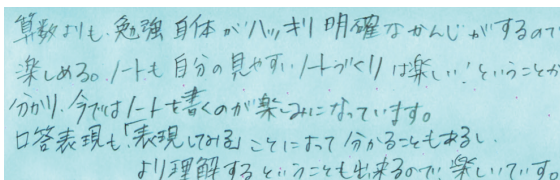 算数よりも、勉強自体がハッキリ明確なかんじがするので
楽しめる。ノートも自分の見やすいノートづくりは楽しい!ということが
分かり、今ではノートを書くのが楽しみになっています。
口答表現も、「表現してみる」ことによって分かることもあるし、
より理解するということも出来るので、楽しいです。